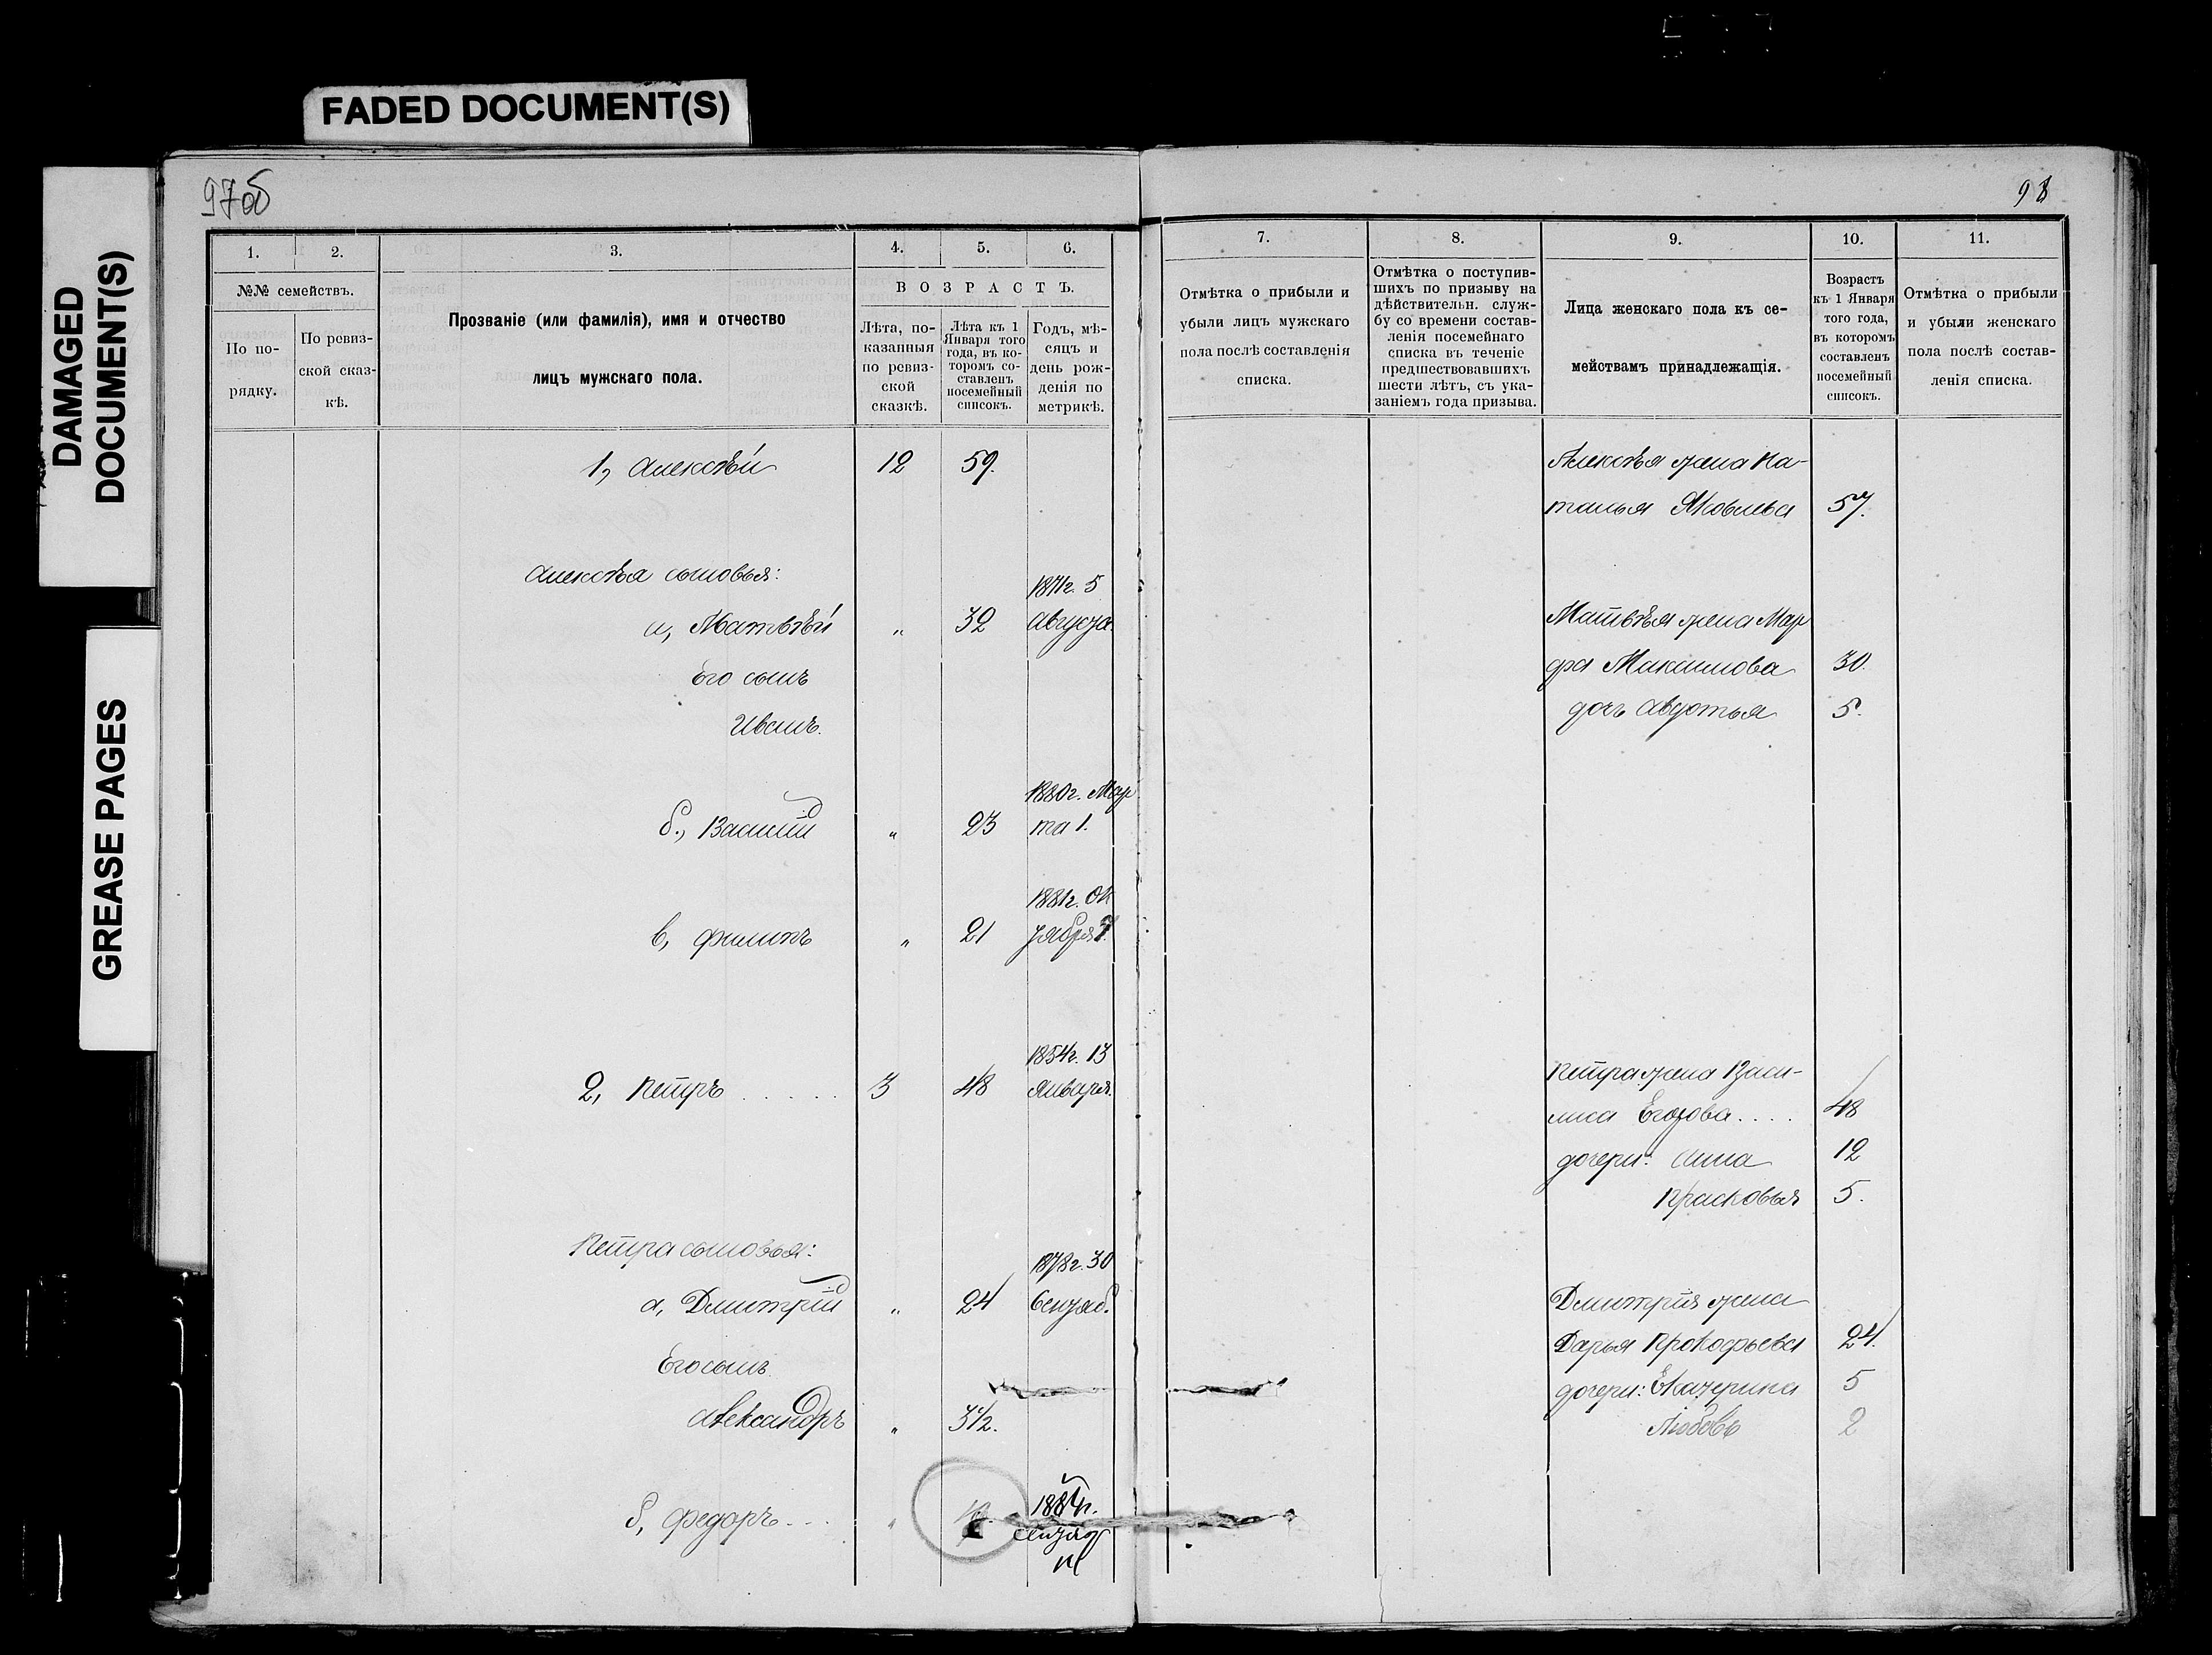 FADED DOCUMENT(S)
DAMAGED
DOCUMENT(S)
GREASE PAGES
97об
1.
2.
3.
4.
5.
6.
№№ семействъ.
По по-
рядку.
По ревиз-
ской сказ-
кѣ.
Прозваніе (или фамилія), имя и отчество
лицъ мужскаго пола.
ВОЗРАСТЪ.
Лѣта, по-
казанныя
по ревиз-
ской
сказкѣ.
Лѣта къ 1
Января того
года, въ ко-
торомъ со-
ставленъ
посемейный
списокъ.
Годъ, мѣ-
сяцъ и
день рож-
денія по
метрикѣ.
1, Алексѣй 12 59.
Алексѣя сыновья:
1871г. 5
а, Матвѣй „ 32 Августа.
Его сынъ
Иванъ.
1880г. Мар
б., Василій „ 23 та 1.
1881г. Ок
в, Филипъ „ 21 тября
1854г. 13
2, Петръ ..... 3 48 Января.
Петра сыновья:
1878г. 30
а, Дмитрій „ 24 Сентяб.
Его сынъ
Александръ „ 3½.
б, Федоръ... „
98
7.
8.
9.
10.
11.
Отмѣтка о прибыли и
убыли лицъ мужскаго
пола послѣ составленія
списка.
Отмѣтка о поступив-
шихъ по призыву на
дѣйствительн. служ-
бу со времени состав-
ленія посемейнаго
списка въ теченіе
предшествовавшихъ
шести лѣтъ, съ ука-
заніемъ года призыва.
Лица женскаго пола къ се-
мействамъ принадлежащія.
Возрастъ
къ 1 Января
того года,
въ которомъ
составленъ
посемейный
списокъ.
Отмѣтка о прибыли
и убыли женскаго
пола послѣ состав-
ленія списка.
Алексѣя жена На-
талья Яковлева 57.
Матвѣя жена Мар
фа Максимова 30.
дочь Авдотья 5.
Петра жена Васи-
лиса Егорова.... 48
дочери: Анна 12
Прасковья 5.
Дмитрія жена
Дарья Прокофьева 24.
дочери: Екатерина 5
Любовь 2